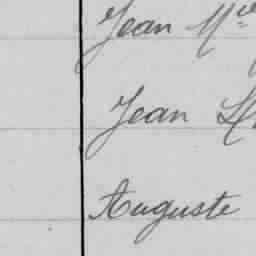 Jean M^ie
Jean
Auguste